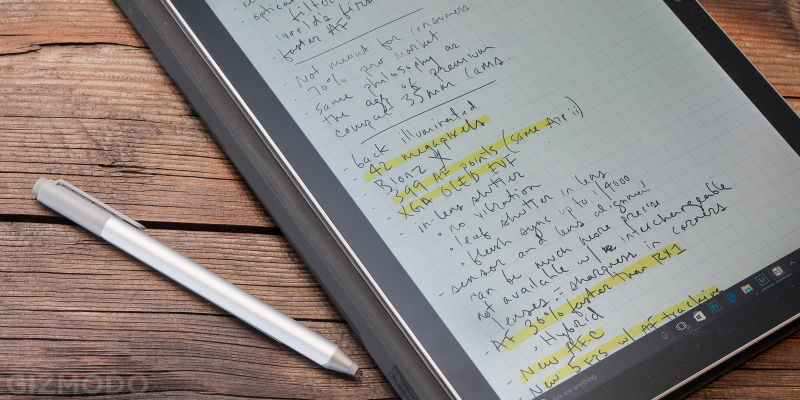 optical
Filter
World's first
faster AF
- Not meant for consumers
- 70% pro market
- same philosophy as
the age of premium
compact 35mm cams.
- back illuminated
- 42 megapixels
- Bionz X
- 399 AF points (same A7R ii)
- XGA OLED EVF
- in lens shutter
• no vibration
• leaf shutter in lens
• flash sync up to 1/4000
- sensor and lens aligned
can be much more precise
not available w/ interchangeable
lenses = sharpness in corners
- AF 30% faster than RX1
• Hybrid
- New AF-C
- New 5 FPS w/ AF tracking
ask me anything
GIZMODO